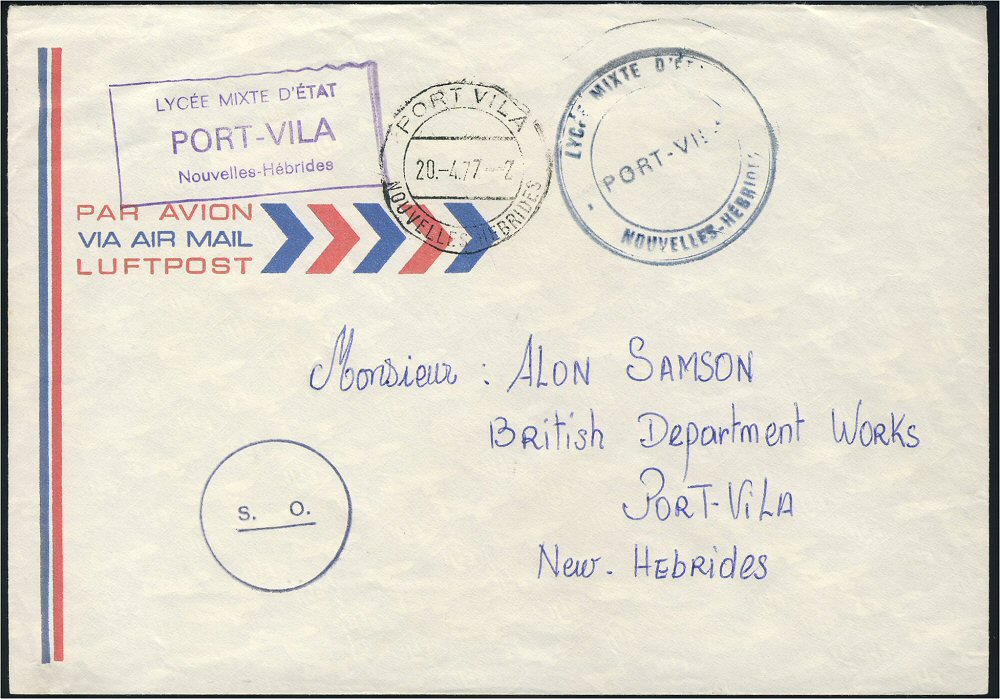 LYCÉE MIXTE D'ÉTAT
PORT-VILA
Nouvelles-Hébrides
PORT VILA
20.-4.77--Z
NOUVELLES HEBRIDES
LYCÉE MIXTE D'ÉT
PORT-VIL
NOUVELLES-HÉBRIDES
PAR AVION
VIA AIR MAIL
LUFTPOST
Monsieur : ALON SAMSON
British Department Works
PORT-VILA
New. HEBRIDES
S. O.